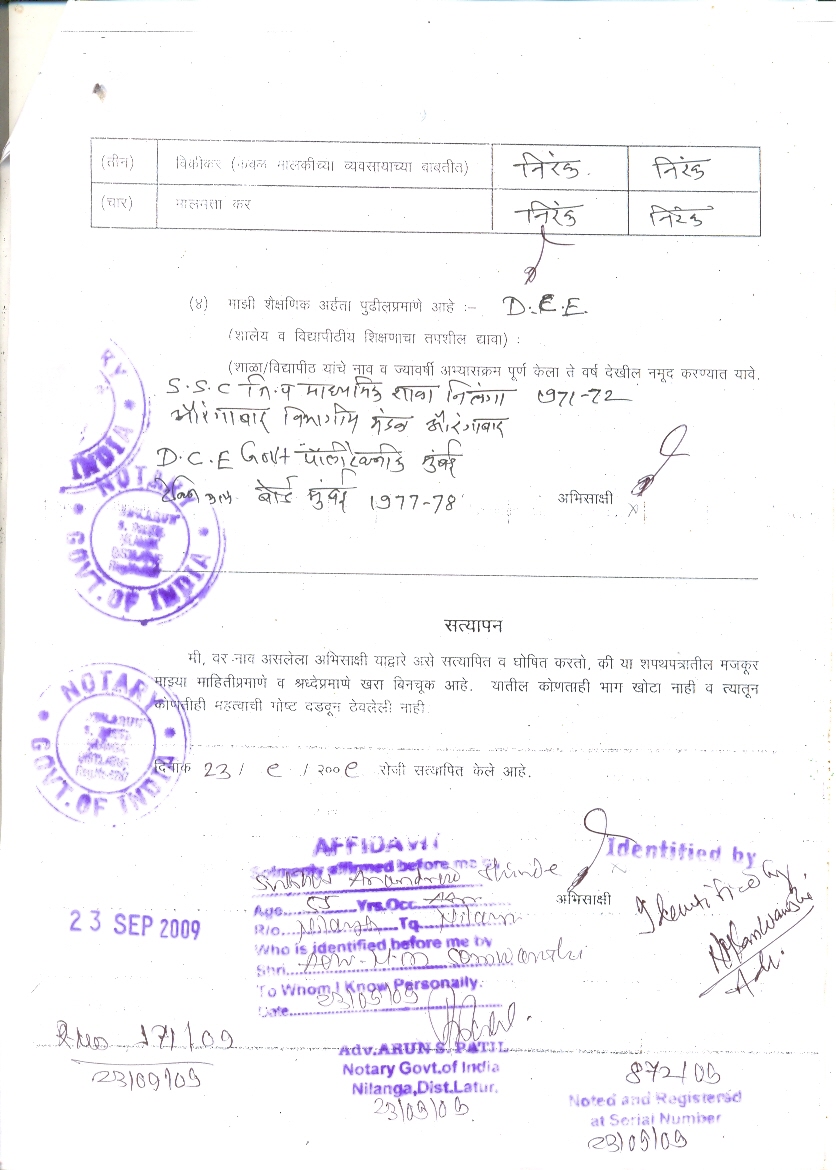 (तीन) विक्रीकर (केवळ मालकीच्या व्यवसायाच्या बाबतीत) निरंक निरंक
(चार) मालमत्ता कर निरंक निरंक
(४) माझी शैक्षणिक अर्हता पुढीलप्रमाणे आहे :- D.C.E.
(शालेय व विद्यापीठीय शिक्षणाचा तपशील द्यावा) :
(शाळा/विद्यापीठ यांचे नाव व ज्यावर्षी अभ्यासक्रम पूर्ण केला ते वर्ष देखील नमूद करण्यात यावे.
S.S.C जि.प माध्यमिक शाळा निलंगा 1971-72
औरंगाबाद विभागीय मंडळ औरंगाबाद
D.C.E Govt पॉलीटेक्नीक मुंबई
बोर्ड मुंबई 1977-78
अभिसाक्षी
NOTARY
GOVT.OF INDIA
सत्यापन
मी, वर नाव असलेला अभिसाक्षी याद्वारे असे सत्यापित व घोषित करतो, की या शपथपत्रातील मजकूर
माझ्या माहितीप्रमाणे व श्रध्देप्रमाणे खरा बिनचूक आहे. यातील कोणताही भाग खोटा नाही व त्यातून
कोणतीही महत्वाची गोष्ट दडवून ठेवलेली नाही.
NOTARY
GOVT.OF INDIA
दिनांक 23 / ९ / २००९ रोजी सत्यापित केले आहे.
AFFIDAVIT
Solemnly affirmed before me
Anandrao Shinde
Age Yrs.Occ
R/o Nilanga Tq Nilanga
Who is identified before me by
Shri Adv. M.M
To Whom I Know Personally.
Date 23/09/09
Adv.ARUN S. PATIL
Notary Govt.of India
Nilanga,Dist.Latur.
23/09/09
23 SEP 2009
अभिसाक्षी
Identified by
Identified by
Adv.
R.No 171/09
23/09/09
872/09
Noted and Registered
at Serial Number
23/09/09